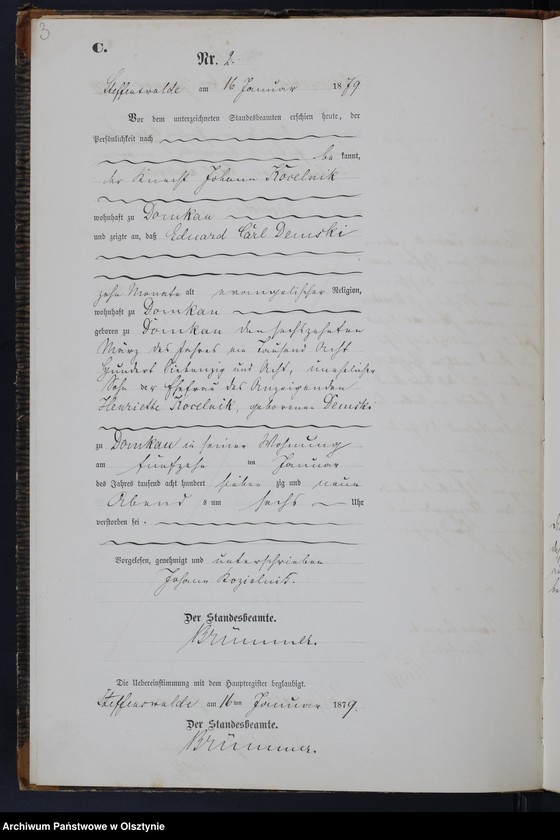 3
C.
Nr. 2.
Steffenswalde am 16 Januar 1879
Vor dem unterzeichneten Standesbeamten erschien heute, der
Persönlichkeit nach
be kannt,
der Knecht Johann Kocelnik
wohnhaft zu Domkau
und zeigte an, daß Eduard Carl Demski
zehn Monate alt evangelischer Religion,
wohnhaft zu Domkau
geboren zu Domkau den sechszehnten
März des Jahres ein Tausend Acht
Hundert Siebenzig und Acht, unehelicher
Sohn der Ehefrau des Anzeigenden
Henriette Kocelnik, geborenen Demski
zu Domkau in seiner Wohnung
am fünfzehn ten Januar
des Jahres tausend acht hundert sieben zig und neun
Abend s um sechs Uhr
verstorben sei.
Vorgelesen, genehmigt und unterschrieben
Johann Kozielnik.
Der Standesbeamte.
Brümmer.
Die Uebereinstimmung mit dem Hauptregister beglaubigt.
Steffenswalde am 16ten Januar 1879.
Der Standesbeamte.
Brümmer.
Archiwum Państwowe w Olsztynie